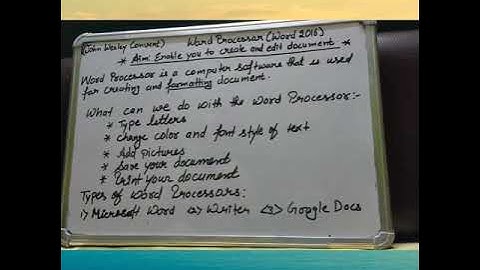 (John Wesley Convent) Word Processor (Word 2016)
* Aim: Enable you to create and edit document *
Word Processor is a computer software that is used
for creating and formatting document.
What can we do with the Word Processor:-
* Type letters
* Change color and font style of text
* Add pictures
* Save your document
* Print your document
Types of Word Processors:
1) Microsoft Word (2) Writer (3) Google Docs